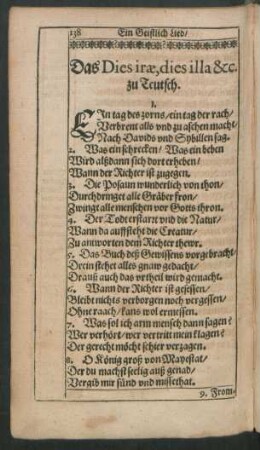 138 Ein Geistlich Lied/
Das Dies iræ, dies illa &c.
zu Teutsch.
1.
EIn tag des zorns/ ein tag der rach/
Verbrent alls vnd zu aschen macht/
Nach Davids vnd Sybillen sag.
2. Was ein schrecken/ Was ein beben
Wird alßdann sich dort erheben/
Wann der Richter ist zugegen.
3. Die Posaun wunderlich von thon/
Durchdringet alle Gräber fron/
Zwingt alle menschen vor Gotts thron.
4. Der Todt erstarrt vnd die Natur/
Wann da auffsteht die Creatur/
Zu antworten dem Richter thewr.
5. Das Buch deß Gewissens vorgebracht
Drein stehet alles gnaw gedacht/
Drauß auch das vrtheil wird gemacht.
6. Wann der Richter ist gesessen/
Bleibt nichts verborgen noch vergessen/
Ohne raach/ kans wol ermessen.
7. Was sol ich arm mensch dann sagen?
Wer verhört/ wer vertritt mein klagen?
Der gerecht möcht schier verzagen.
8. O König groß von Mayestat/
Der du machst seelig auß genad/
Vergib mir sünd vnd missethat.
9. From-